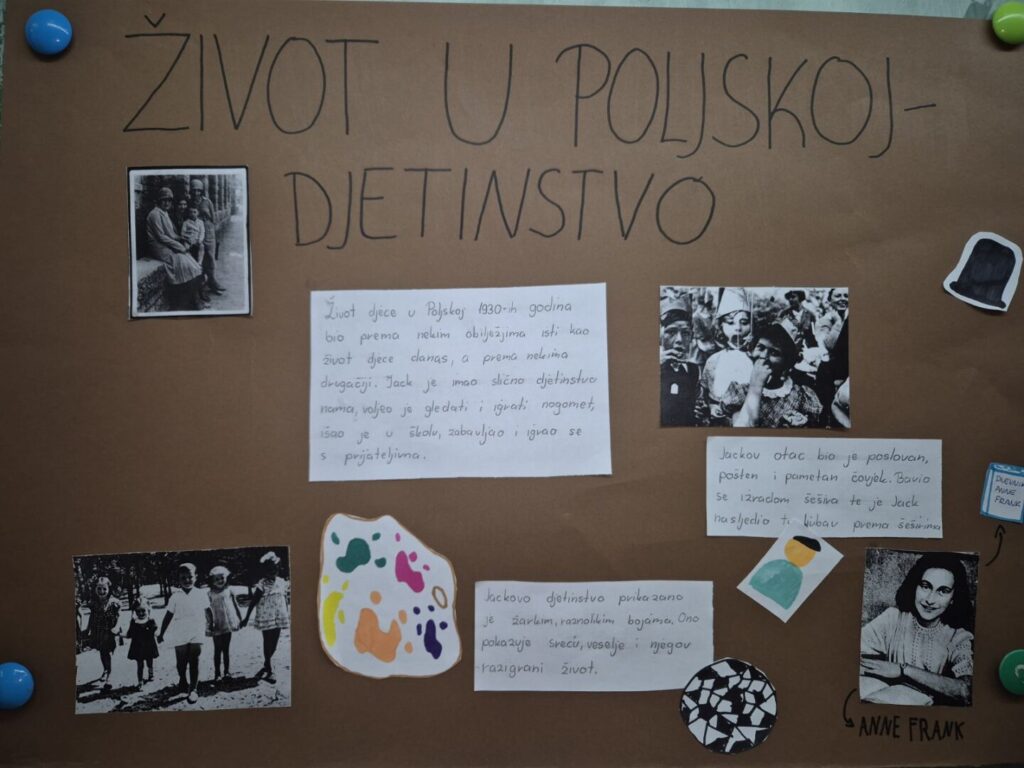 ŽIVOT U POLJSKOJ-
DJETINSTVO
Život djece u Poljskoj 1930-ih godina
bio prema nekim obilježjima isti kao
život djece danas, a prema nekima
drugačiji. Jack je imao slično djetinstvo
nama, voljeo je gledati i igrati nogomet,
išao je u školu, zabavljao i igrao se
s prijateljima.
Jackov otac bio je poslovan,
pošten i pametan čovjek. Bavio
se izradom šešira te je Jack
nasljedio tu ljubav prema šeširima
Jackovo djetinstvo prikazano
je žarkim, raznolikim bojama. Ono
pokazuje sreću, veselje i njegov
razigrani život.
DNEVNIK
ANNE
FRANK
ANNE FRANK